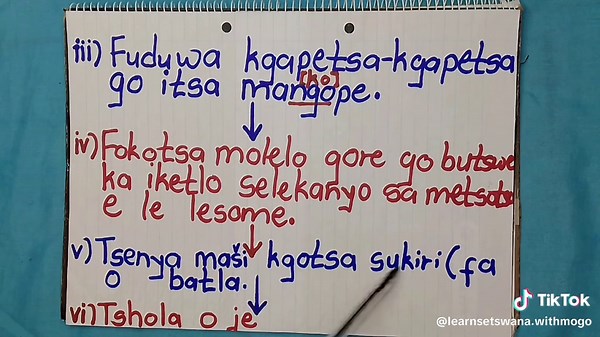 iii) Fuduwa kgapetsa-kgapetsa
[ko]
go itsa mangope.
iv) Fokotsa molelo gore go butswe
ka iketlo selekanyo sa metsotso
e le lesome.
v) Tsenya mašī kgotsa sukiri (fa
o batla.
vi) Tshola o je
TikTok
@learnsetswana.withmogo